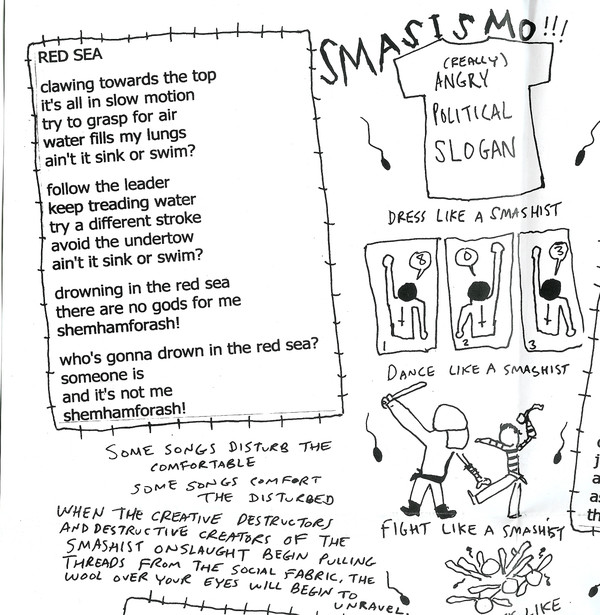 RED SEA
clawing towards the top
it's all in slow motion
try to grasp for air
water fills my lungs
ain't it sink or swim?
follow the leader
keep treading water
try a different stroke
avoid the undertow
ain't it sink or swim?
drowning in the red sea
there are no gods for me
shemhamforash!
who's gonna drown in the red sea?
someone is
and it's not me
shemhamforash!
SOME SONGS DISTURB THE
COMFORTABLE
SOME SONGS COMFORT
THE DISTURBED
WHEN THE CREATIVE DESTRUCTORS
AND DESTRUCTIVE CREATORS OF THE
SMASHIST ONSLAUGHT BEGIN PULLING
THREADS FROM THE SOCIAL FABRIC, THE
WOOL OVER YOUR EYES WILL BEGIN TO
UNRAVEL.
SMASISMO!!!
(REALLY)
ANGRY
POLITICAL
SLOGAN
DRESS LIKE A SMASHIST
8
0
3
1
2
3
DANCE LIKE A SMASHIST
FIGHT LIKE A SMASHIST
LIKE
j
a
as
th